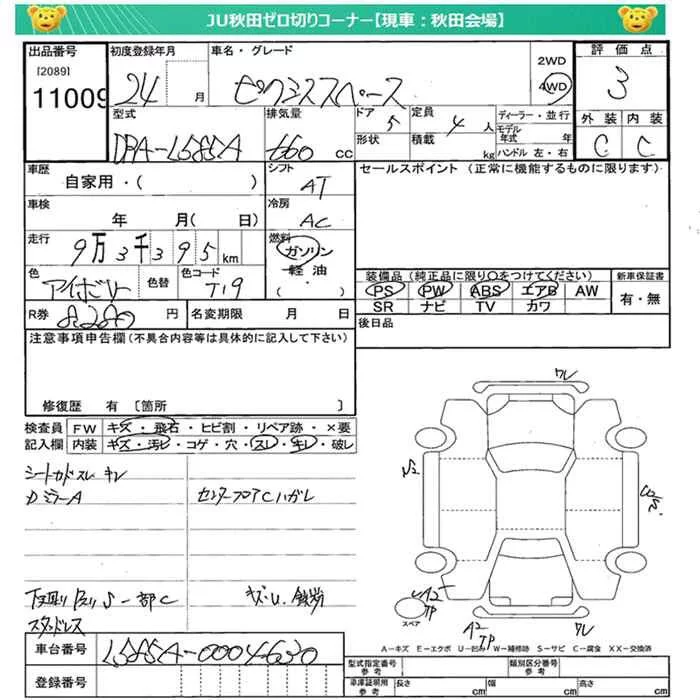 JU秋田ゼロ切りコーナー【現車：秋田会場】
出品番号 初度登録年月 車名・グレード 2WD 評価点
[2089] 11009 24 月 ピクシススペース 4WD 3
型式 排気量 ドア 5 定員 4 人 ディーラー・並行 外装 内装
DBA-L585A 660 cc 形状 積載 kg モデル年式 年 C C
ハンドル 左・右
車歴 シフト セールスポイント (正常に機能するものに限ります)
自家用・( ) AT
車検 冷房
年 月( 日) AC
走行 燃料
9万3千395km ガソリン
軽油
色 色替 色コード ( )
アイボリー T19
装備品 (純正品に限り○をつけてください) 新車保証書
PS PW ABS エアB AW 有・無
SR ナビ TV カワ
R券 8,280 円 名変期限 月 日 後日品
注意事項申告欄(不具合内容等は具体的に記入して下さい)
修復歴 有 [箇所 ]
検査員 FW キズ・飛石・ヒビ割・リペア跡・×要
記入欄 内装 キズ・汚レ・コゲ・穴・スレ・キレ・破レ
シートカドスレ キレ
DミラーA センターフロアCハガレ
ワレ
A2
TP
スペア
A2
TP
ワレ
下廻り 一部C キズ
スタッドレス
A-キズ E-エクボ U-凹み W-補修跡 S-サビ C-腐食 XX-交換済
車台番号 L585A-0004630
登録番号
型式指定番号 参考 類別区分番号 参考
車庫証明用 参考 長さ cm 幅 cm 高さ cm